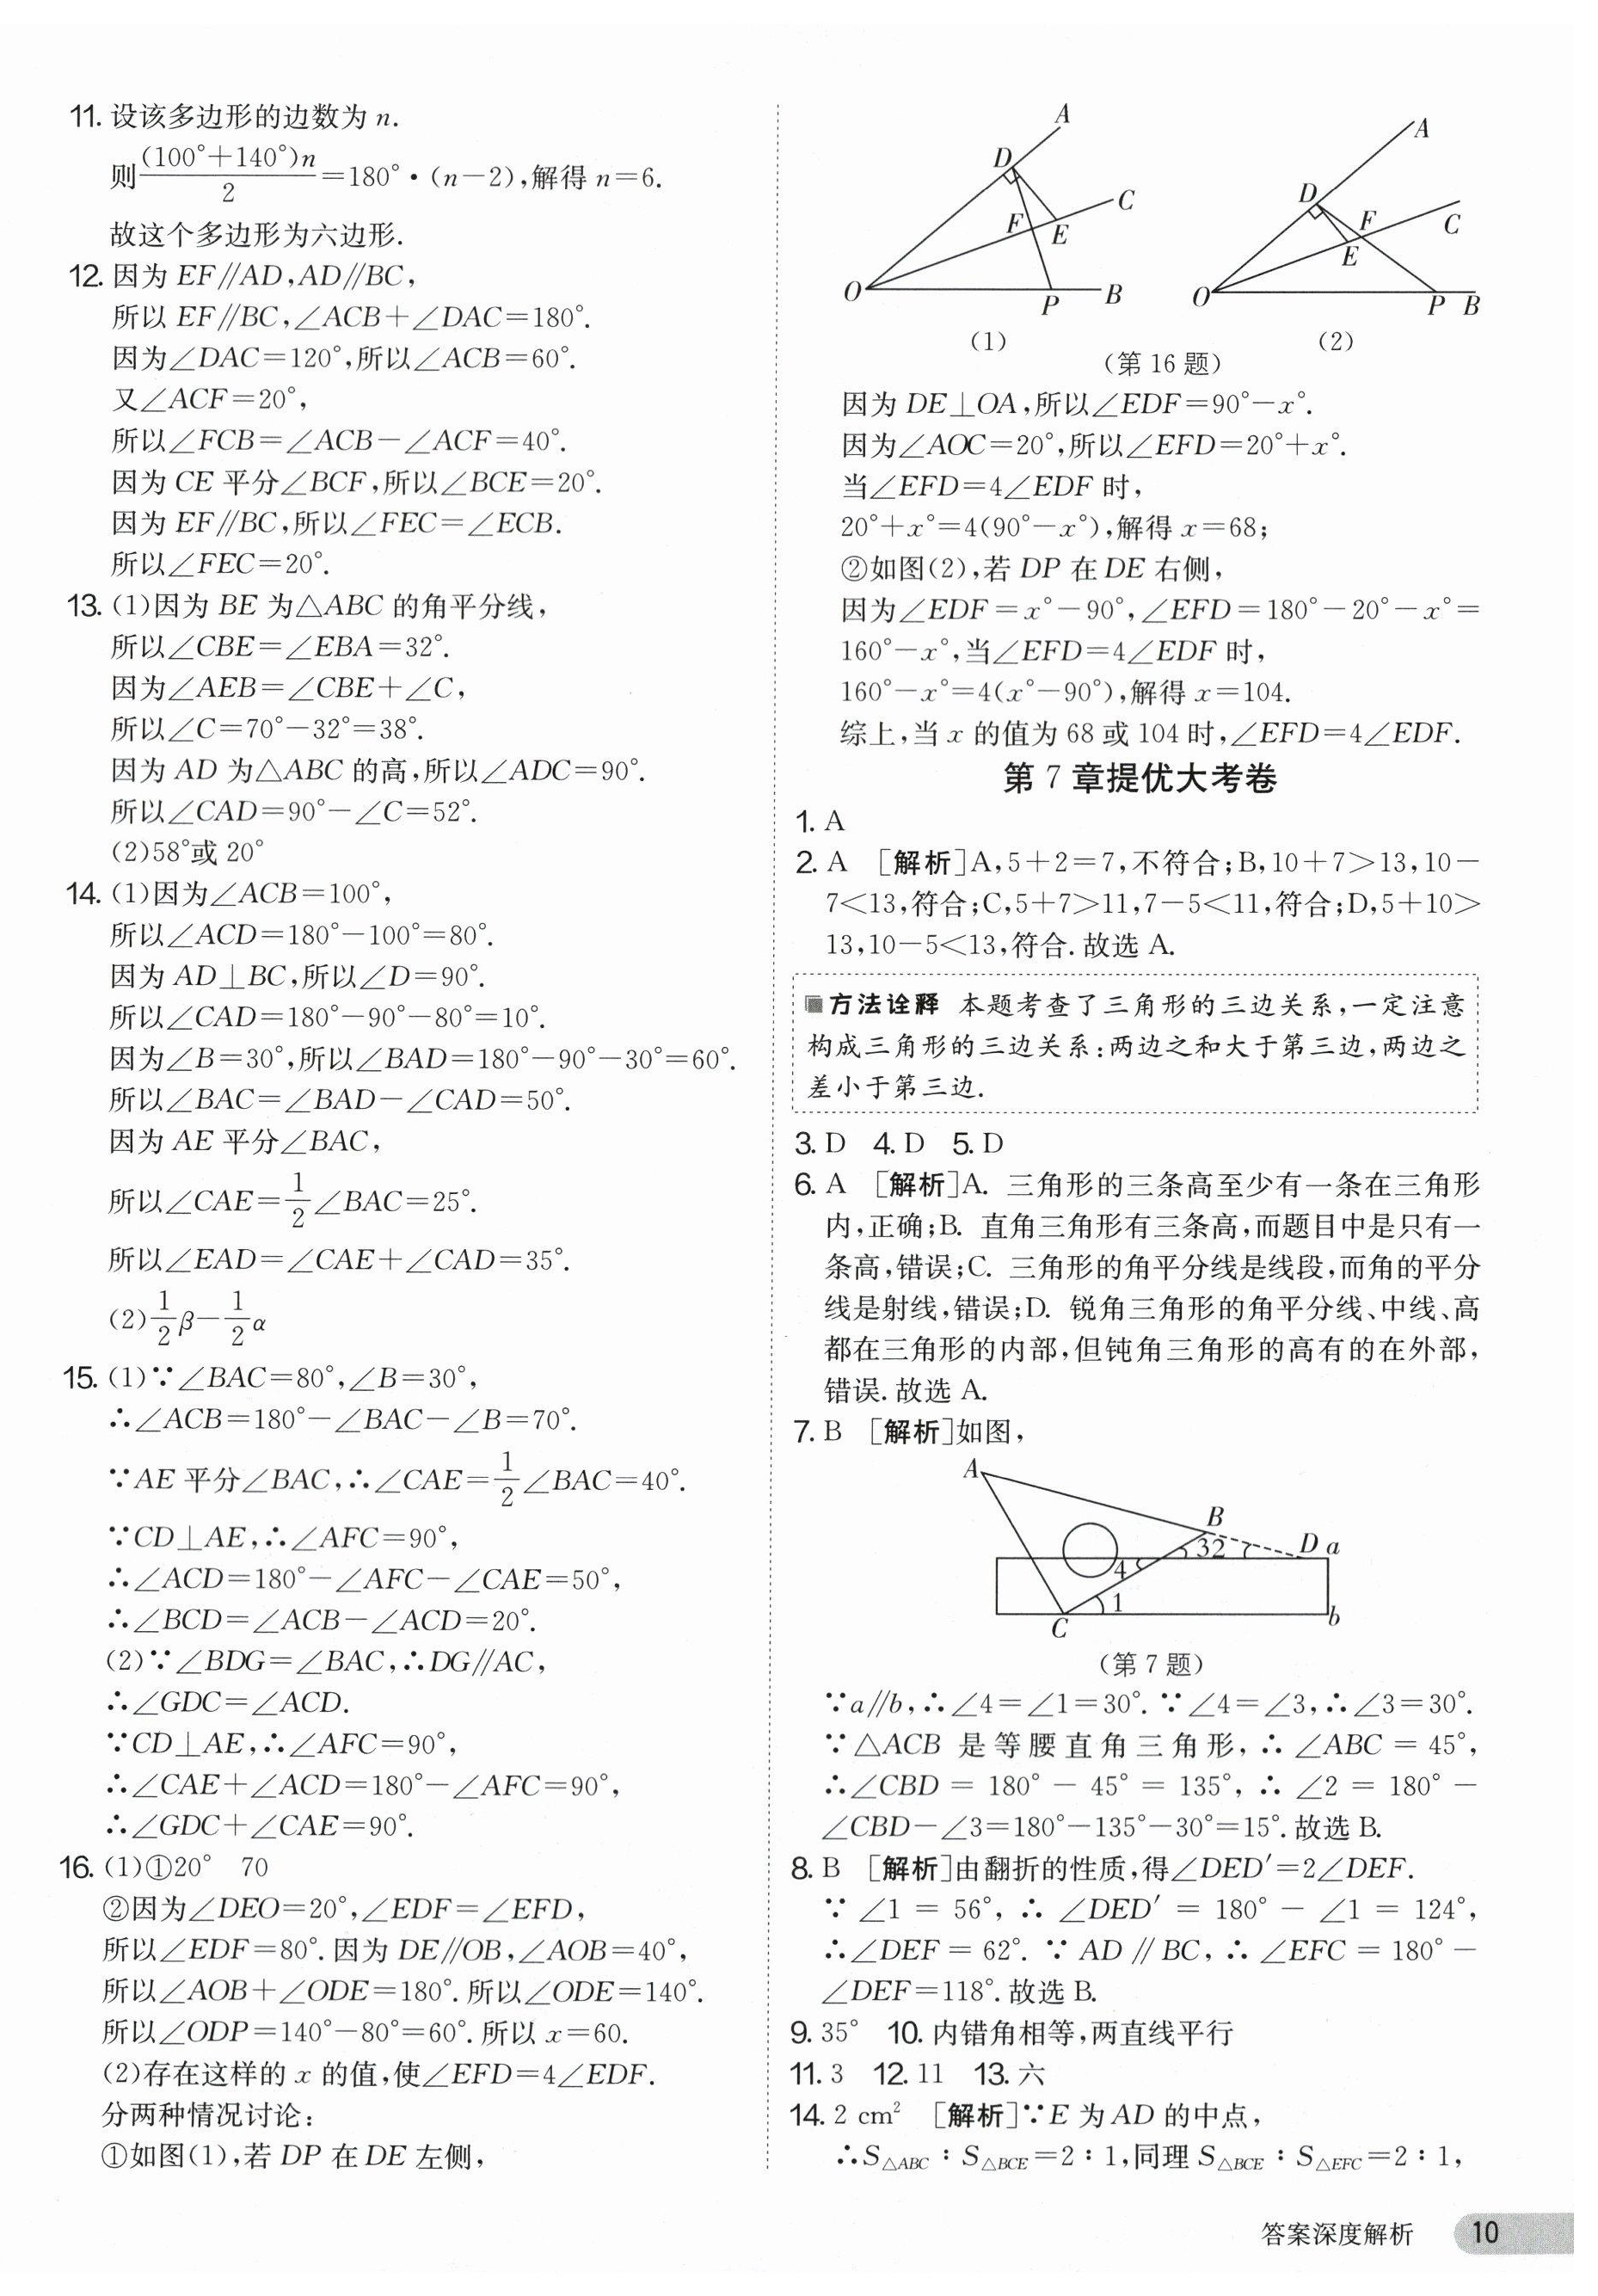 11. 设该多边形的边数为 n.
则(100°+140°)n/2=180°·(n-2),解得 n=6.
故这个多边形为六边形.
12. 因为 EF∥AD,AD∥BC,
所以 EF∥BC,∠ACB+∠DAC=180°.
因为∠DAC=120°,所以∠ACB=60°.
又∠ACF=20°,
所以∠FCB=∠ACB-∠ACF=40°.
因为 CE 平分∠BCF,所以∠BCE=20°.
因为 EF∥BC,所以∠FEC=∠ECB.
所以∠FEC=20°.
13. (1)因为 BE 为△ABC 的角平分线,
所以∠CBE=∠EBA=32°.
因为∠AEB=∠CBE+∠C,
所以∠C=70°-32°=38°.
因为 AD 为△ABC 的高,所以∠ADC=90°.
所以∠CAD=90°-∠C=52°.
(2)58°或 20°
14. (1)因为∠ACB=100°,
所以∠ACD=180°-100°=80°.
因为 AD⊥BC,所以∠D=90°.
所以∠CAD=180°-90°-80°=10°.
因为∠B=30°,所以∠BAD=180°-90°-30°=60°.
所以∠BAC=∠BAD-∠CAD=50°.
因为 AE 平分∠BAC,
所以∠CAE=1/2∠BAC=25°.
所以∠EAD=∠CAE+∠CAD=35°.
(2)1/2β-1/2α
15. (1)∵∠BAC=80°,∠B=30°,
∴∠ACB=180°-∠BAC-∠B=70°.
∵AE 平分∠BAC,∴∠CAE=1/2∠BAC=40°.
∵CD⊥AE,∴∠AFC=90°,
∴∠ACD=180°-∠AFC-∠CAE=50°,
∴∠BCD=∠ACB-∠ACD=20°.
(2)∵∠BDG=∠BAC,∴DG∥AC,
∴∠GDC=∠ACD.
∵CD⊥AE,∴∠AFC=90°,
∴∠CAE+∠ACD=180°-∠AFC=90°,
∴∠GDC+∠CAE=90°.
16. (1)①20° 70
②因为∠DEO=20°,∠EDF=∠EFD,
所以∠EDF=80°.因为 DE∥OB,∠AOB=40°,
所以∠AOB+∠ODE=180°.所以∠ODE=140°.
所以∠ODP=140°-80°=60°.所以 x=60.
(2)存在这样的 x 的值,使∠EFD=4∠EDF.
分两种情况讨论:
①如图(1),若 DP 在 DE 左侧,
A
D
C
F
E
O
P
B
(1)
A
D
F
C
E
O
P
B
(2)
(第 16 题)
因为 DE⊥OA,所以∠EDF=90°-x°.
因为∠AOC=20°,所以∠EFD=20°+x°.
当∠EFD=4∠EDF 时,
20°+x°=4(90°-x°),解得 x=68;
②如图(2),若 DP 在 DE 右侧,
因为∠EDF=x°-90°,∠EFD=180°-20°-x°=
160°-x°,当∠EFD=4∠EDF 时,
160°-x°=4(x°-90°),解得 x=104.
综上,当 x 的值为 68 或 104 时,∠EFD=4∠EDF.
第 7 章提优大考卷
1. A
2. A [解析]A,5+2=7,不符合;B,10+7>13,10-
7<13,符合;C,5+7>11,7-5<11,符合;D,5+10>
13,10-5<13,符合.故选 A.
方法诠释 本题考查了三角形的三边关系,一定注意
构成三角形的三边关系:两边之和大于第三边,两边之
差小于第三边.
3. D 4. D 5. D
6. A [解析]A. 三角形的三条高至少有一条在三角形
内,正确;B. 直角三角形有三条高,而题目中是只有一
条高,错误;C. 三角形的角平分线是线段,而角的平分
线是射线,错误;D. 锐角三角形的角平分线、中线、高
都在三角形的内部,但钝角三角形的高有的在外部,
错误.故选 A.
7. B [解析]如图,
A
B
32
D a
4
1
C
b
(第 7 题)
∵a∥b,∴∠4=∠1=30°.∵∠4=∠3,∴∠3=30°.
∵△ACB 是等腰直角三角形,∴∠ABC=45°,
∴∠CBD=180°-45°=135°,∴∠2=180°-
∠CBD-∠3=180°-135°-30°=15°.故选 B.
8. B [解析]由翻折的性质,得∠DED′=2∠DEF.
∵∠1=56°,∴∠DED′=180°-∠1=124°,
∴∠DEF=62°.∵AD∥BC,∴∠EFC=180°-
∠DEF=118°.故选 B.
9. 35° 10. 内错角相等,两直线平行
11. 3 12. 11 13. 六
14. 2 cm² [解析]∵E 为 AD 的中点,
∴S△ABC∶S△BCE=2∶1,同理 S△BCE∶S△EFC=2∶1,
答案深度解析 10